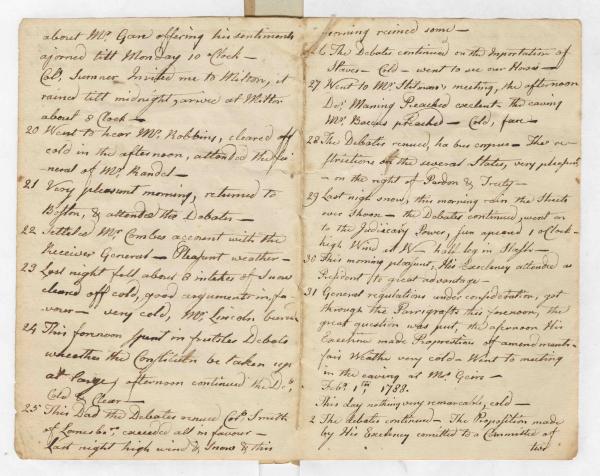 about Mr. Gare offering his sentiments
ajorned till Monday 10 oClock —
Colo. Sumner Invited me to Milton, it
rained till midnight, arrive at Milton
about 8 Clock —
20 Went to hear Mr. Robbins, cleared off
cold in the afternoon, attended the fu-
neral of Mr. Randel —
21 Very pleasent morning, returned to
Boston, & attended the Debates —
22 Settled Mr. Combes account with the
Receiver General — Pleasunt weather —
23 Last night fell about 8 intches of Snow
cleared off cold, good arguments in fa-
vour — very cold, Mr. Lincoln
24 This forenoon spent in fruitles Debats
wheather the Constitutin be taken up
at large, afternoon continued the Do.,
Cold & Clear —
25 This Dad the Debates renued Colo. Smith
of Lanesbo., exceeded all in favour —
Last night high wind & Snow & this
morning rained some —
The Debates continued on the Importation of
Slaves — Cold — went to see our House —
27 Went to Mr. Stilmans meeting, the afternoon
Dor. Maning Preached exelent — the eaving
Mr. Baccus preached — Cold, fare —
28 The Debates renued, ha bus corpus — The re-
strictions on the several States, very pleasent
— on the right of Pardon & Treaty —
29 Last nigh snow, this morning rain the Streets
over Shoon — the Debates continued, went on
to the Judiciary Power, jun apeared 1 oClock —
high Wind at W.
30 This morning plesent, His Excelency attended as
Presidont to great advantage —
31 General regulations under consideration, got
through the Parrigrafts this forenoon, the
great question was put, the afternoon His
Excelence made Propositions of amendments —
fair Weathr very cold — Went to meeting
in the eaving at Mr. Geirs —
Feby. 1th 1788.
This day nothing very remarcable, cold —
2 The debates continued — The Proposition made
by His Excelency comitted to a Committee of
two